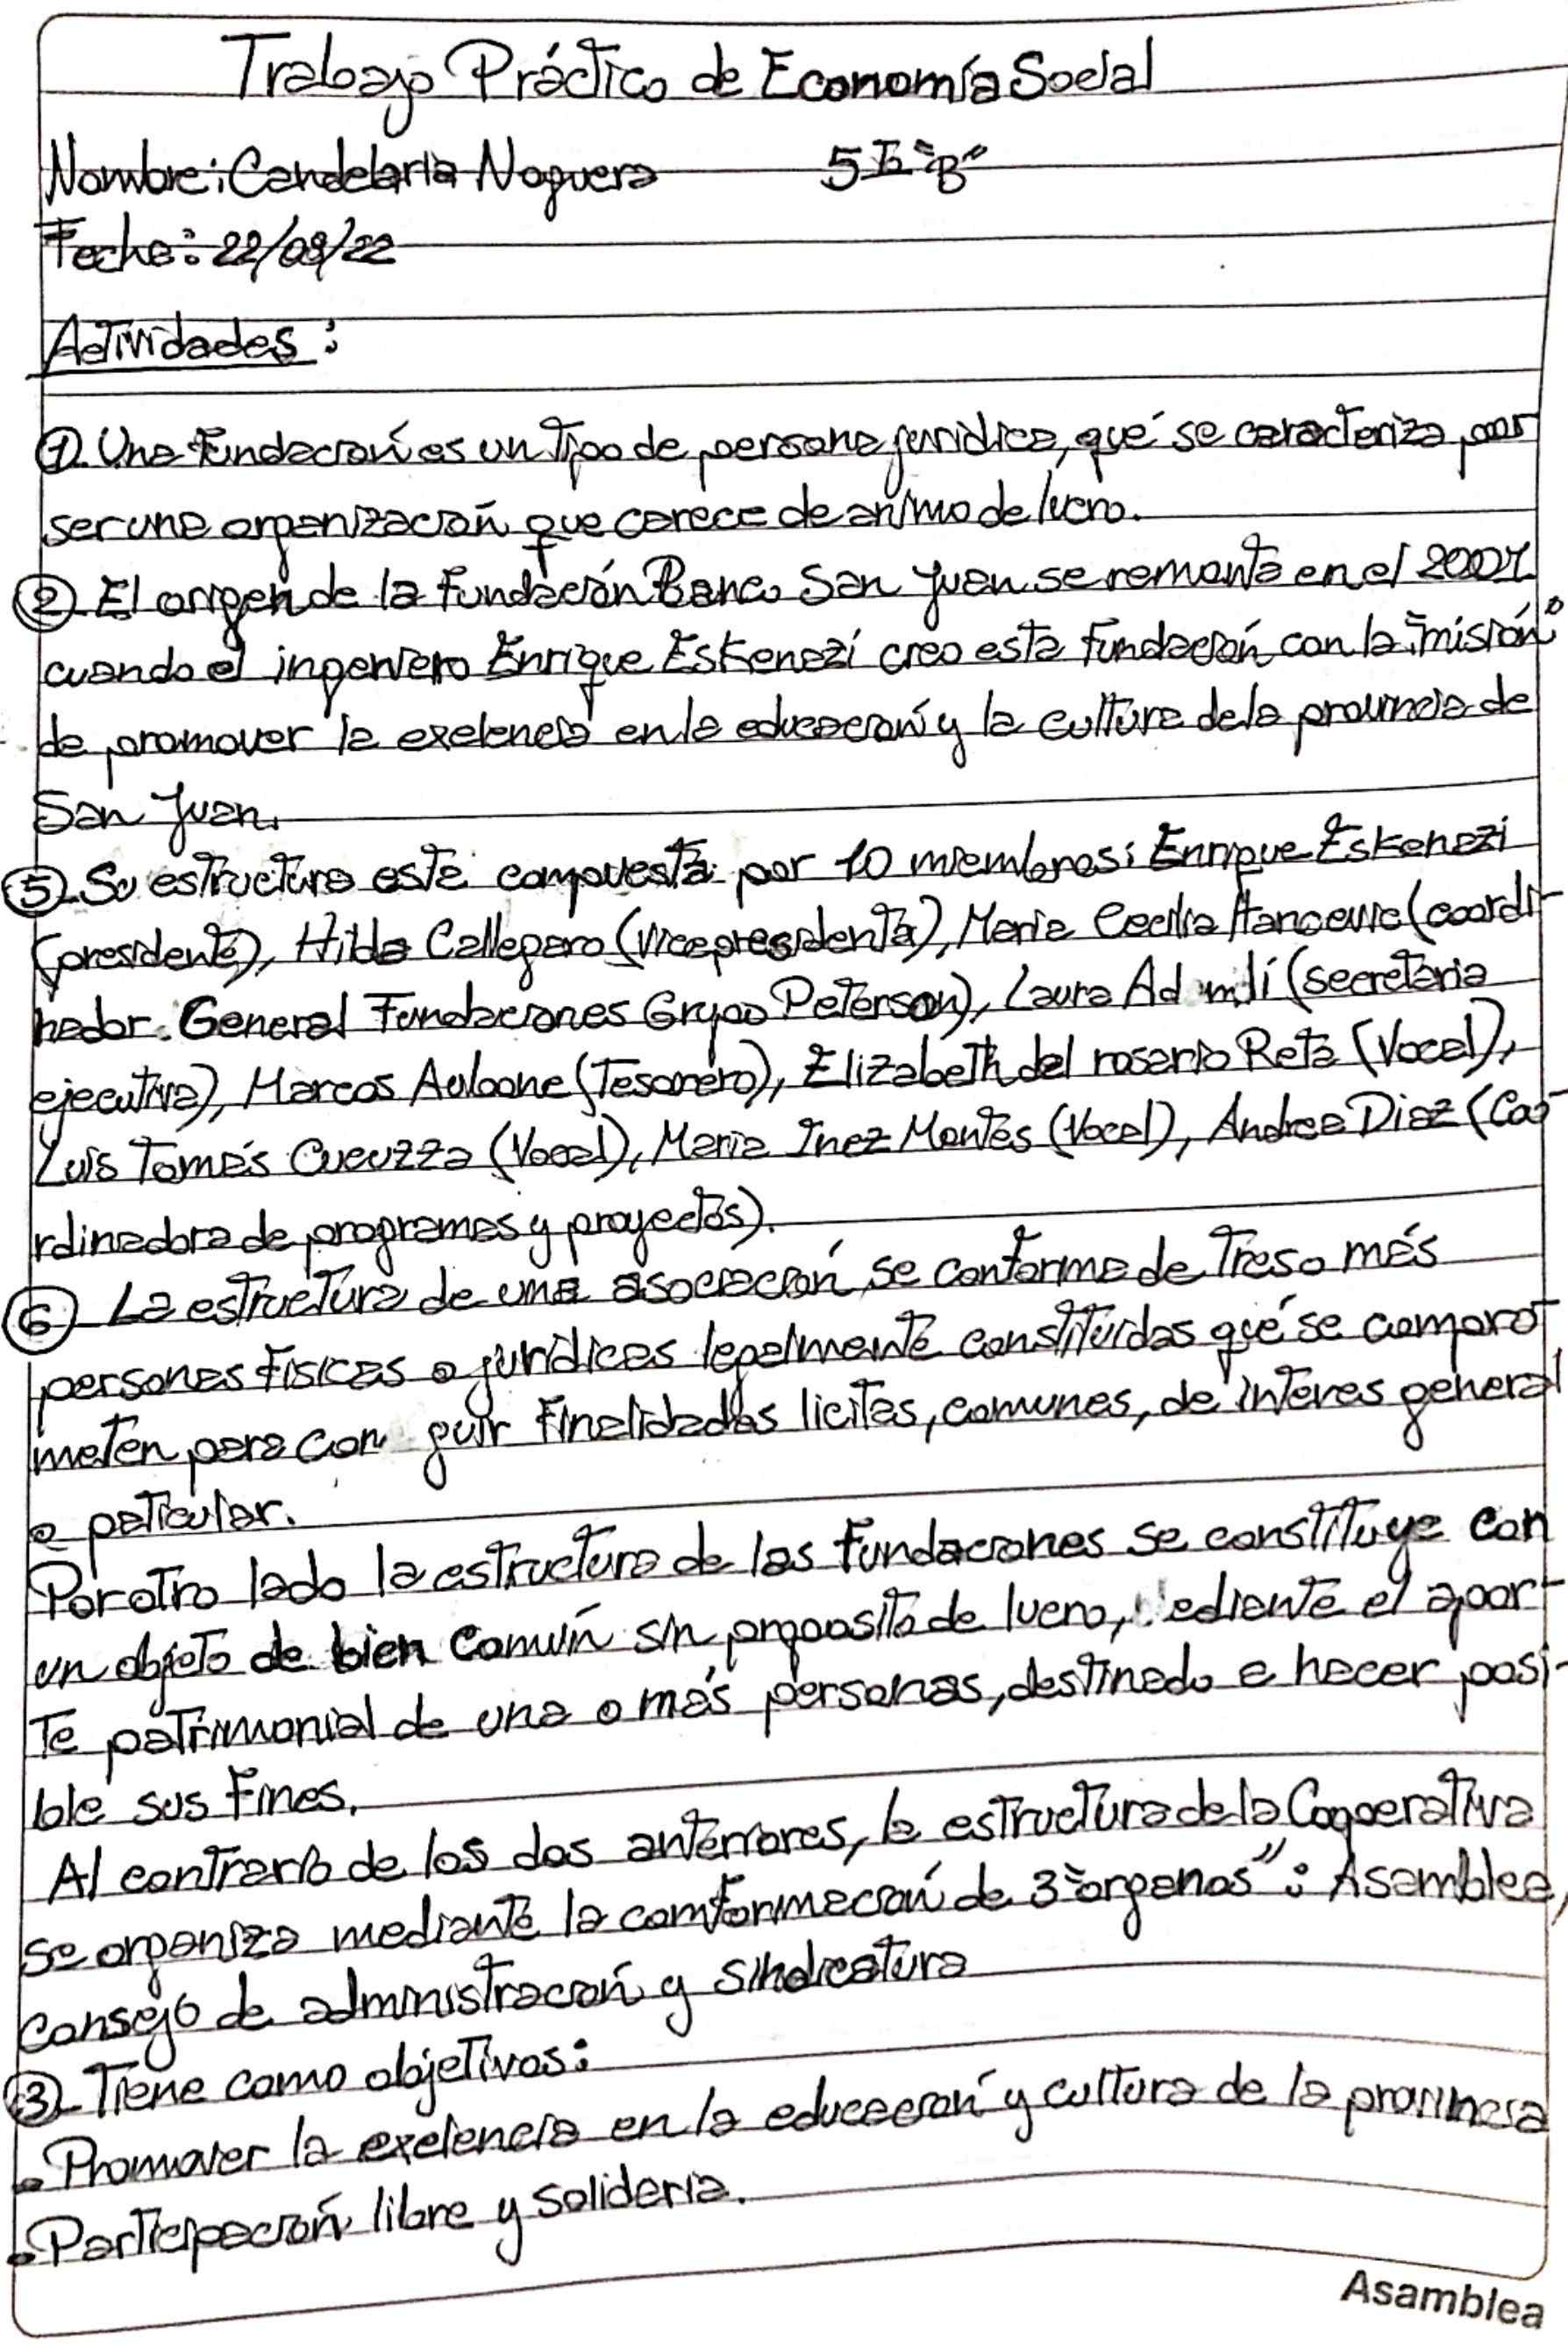 Trabajo Práctico de Economía Social
Nombre: Candelaria Noguera 5 to "B"
Fecha: 22/08/22
Actividades:
①. Una Fundación es un tipo de persona juridica, qué se caracteriza por
ser una organización que carece de animo de lucro.
②. El origen de la Fundación Banco San Juan se remonta en el 2007
cuando el ingeniero Enrique Eskenazi creo esta Fundación con la "misión"
de promover la exelencia en la educación y la cultura de la provincia de
San Juan.
⑤. Su estructura esta compuesta por 10 miembros: Enrique Eskenazi
(presidente), Hilda Callegaro (Vicepresidenta), Maria Cecilia Hancevic (coordi-
nador General Fundaciones Grupo Peterson), Laura Ad mlí (secretaria
ejecutiva), Marcos Aubone (Tesorero), Elizabeth del rosario Reta (Vocal),
Luis Tomás Cucuzza (Vocal), Maria Inez Montes (Vocal), Andrea Diaz (Coo-
rdinadora de programas y proyectos).
⑥ La estructura de una asociación, se conforma de Tres o más
personas Fisicas o jurídicas legalmente constituidas qué se compro-
meten para con guir Finalidades licitas, comunes, de interes general
o paticular.
Por otro lado la estructura de las Fundaciones se constituye con
un objeto de bien Común sin proposito de lucro, ediante el apor-
Te patrimonial de una o más personas, destinado a hacer posi-
ble sus Fines.
Al contrario de los dos anteriores, la estructura de la Cooperativa
se organiza mediante la comformación de 3 "organos": Asamblea,
Consejo de administración y sindicatura
③. Tiene como objetivos:
• Promover la exelencia en la educación y cultura de la provincia
• Participación libre y solidaria.
Asamblea